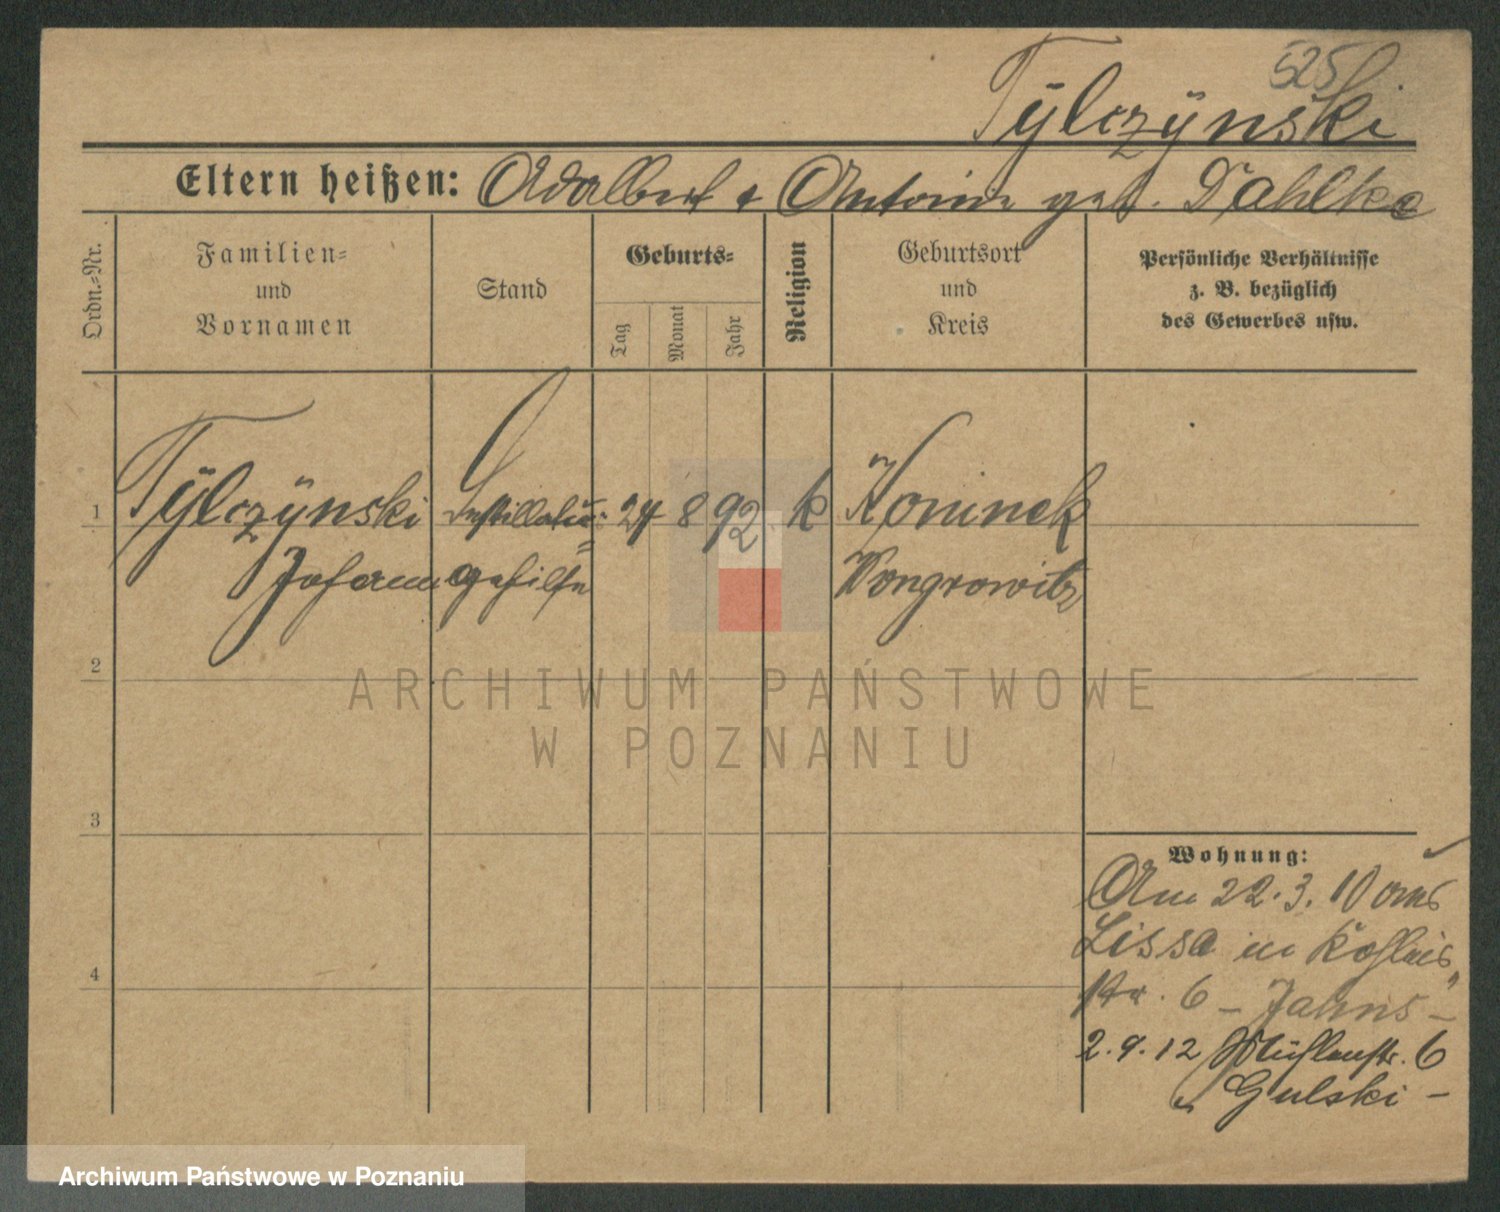 525
Tÿlczÿnski
Eltern heißen: Adalbert & Antonie geb. Dahlke
Ordn.-Nr.
Familien- und Vornamen
Stand
Geburts-
Tag
Monat
Jahr
Religion
Geburtsort und Kreis
Persönliche Verhältnisse
z. B. bezüglich
des Gewerbes usw.
1 Tÿlczÿnski Destillateur- 24 8 92 k Koninek
Johann gehilfe Wongrowitz
2
ARCHIWUM PAŃSTWOWE
W POZNANIU
3
Wohnung:
Am 22.3.10 aus
Lissa in
str. 6 – Jahns –
2.9.12 Mühlenstr. 6
Gulski –
4
Archiwum Państwowe w Poznaniu